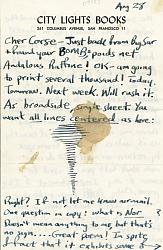 Aug 28
CITY LIGHTS BOOKS
261 COLUMBUS AVENUE, SAN FRANCISCO 11
Cher Corso — Just back from Big Sur
& found your BOMB
Ruthine! OK — am going
to print several thousand! Today.
Tomorrow. Next week. Will rush it.
As broadside, single sheet. You
want all lines centered, as here:
Right? If not, let me know airmail.
One question in copy: what is
Doesn't mean anything to me, but that's
no sign.... Great poem! In spite
of fact that it exhibits some